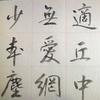 少無適
本愛丘
塵網中